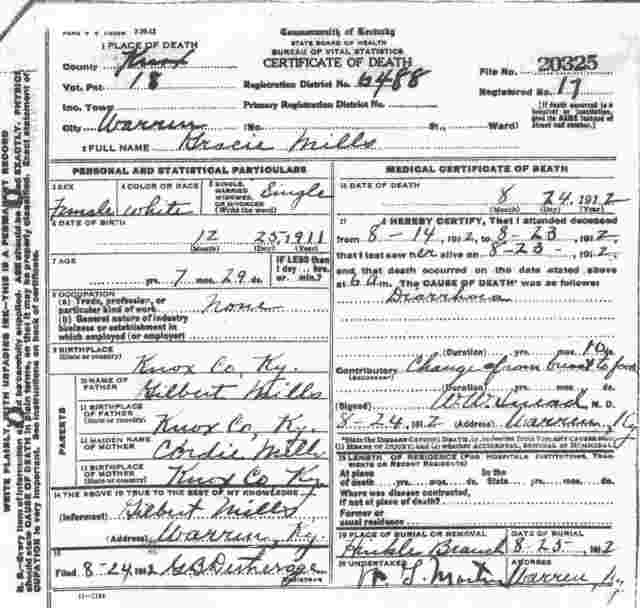 FORM V. S. 7-20-12
Commonwealth of Kentucky
STATE BOARD OF HEALTH
BUREAU OF VITAL STATISTICS
CERTIFICATE OF DEATH
1 PLACE OF DEATH
County Knox
Vot. Pct 18
Inc. Town
City Warren (No. St., Ward)
Registration District No. 6488
Primary Registration District No.
File No. 20325
Registered No. 17
[If death occurred in a hospital or institution, give its NAME instead of street and number.]
2 FULL NAME Gracie Mills
PERSONAL AND STATISTICAL PARTICULARS
3 SEX Female
4 COLOR OR RACE White
5 SINGLE, MARRIED, WIDOWED, OR DIVORCED (Write the word) Single
6 DATE OF BIRTH
12 25, 1911
(Month) (Day) (Year)
7 AGE
yrs. 7 mos. 29 ds.
If LESS than 1 day ... hrs. or min.?
8 OCCUPATION
(a) Trade, profession, or particular kind of work none
(b) General nature of industry business or establishment in which employed (or employer)
9 BIRTHPLACE
(State or country) Knox Co, Ky.
PARENTS
10 NAME OF FATHER Gilbert Mills
11 BIRTHPLACE OF FATHER (State or country) Knox Co, Ky.
12 MAIDEN NAME OF MOTHER Cordie Mills
13 BIRTHPLACE OF MOTHER (State or country) Knox Co Ky
14 THE ABOVE IS TRUE TO THE BEST OF MY KNOWLEDGE
(Informant) Gilbert Mills
(Address) Warren, Ky.
15
Filed 8-24 1912 G.B. Detherage
REGISTRAR
11-1184
MEDICAL CERTIFICATE OF DEATH
16 DATE OF DEATH
8 24, 1912
(Month) (Day) (Year)
17 I HEREBY CERTIFY, That I attended deceased
from 8-14, 1912, to 8-23, 1912,
that I last saw her alive on 8-23, 1912,
and that death occurred on the date stated above
at 6 am. The CAUSE OF DEATH* was as follows:
Diarrhoea
(Duration) yrs. mos. 10 ds.
Contributory Change from breast to food
(SECONDARY)
(Duration) yrs. mos. ds.
(Signed) M. D.
8-24 1912 (Address) Warren, Ky
18 LENGTH OF RESIDENCE (FOR HOSPITALS, INSTITUTIONS, TRANSIENTS OR RECENT RESIDENTS)
At place of death yrs. mos. ds. In the State yrs. mos. ds.
Where was disease contracted, if not at place of death?
Former or usual residence
19 PLACE OF BURIAL OR REMOVAL Hinkle Branch
DATE OF BURIAL 8-25, 1912
20 UNDERTAKER Martin
ADDRESS Warren, Ky
WRITE PLAINLY, WITH UNFADING INK—THIS IS A PERMANENT RECORD